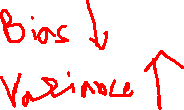 Bias ↓
Variance ↑